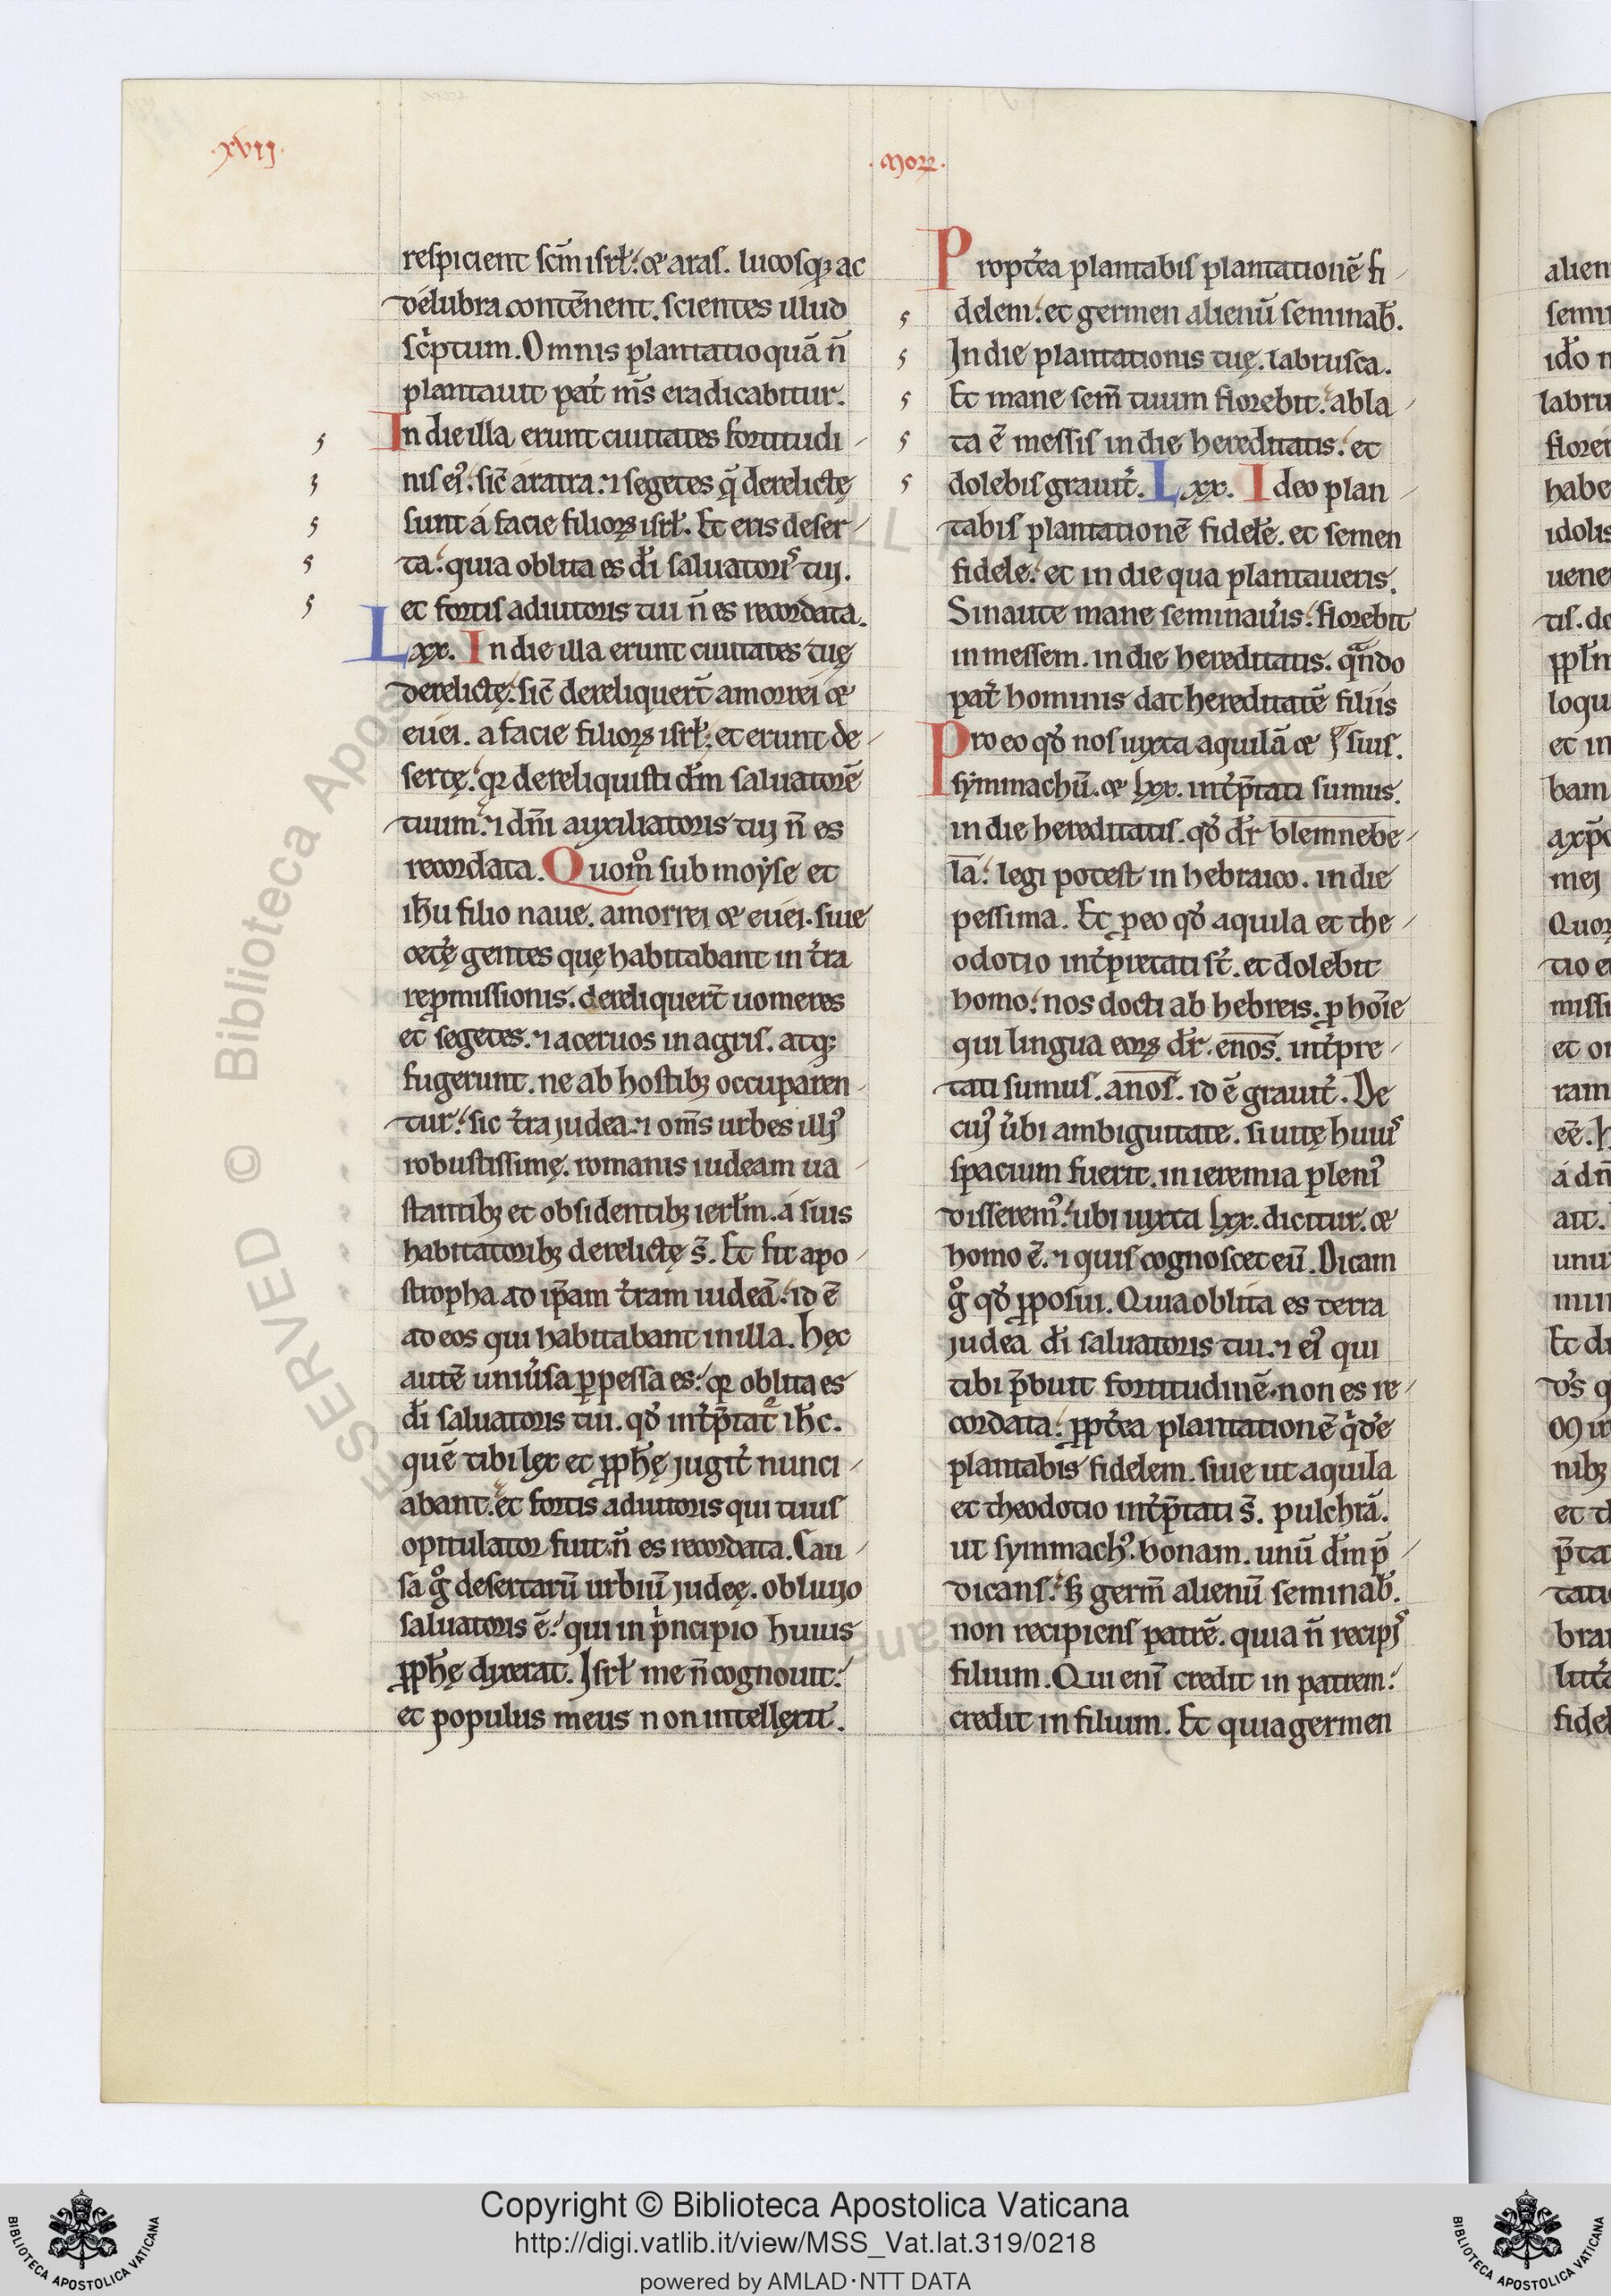 ·xvij·
·Moꝝ·
respicient scm̄ isrł. et aras. lucosq; ac
delubra contēnent. scientes illud
sc̓ptum. Omnis plantatio quā n̄
plantauit pat̓ ms̄ eradicabitur.
In die illa erunt ciuitates fortitudi
nis ei᾿. sic̄ aratra. ⁊ segetes q̄ derelictę
sunt á facie filioꝝ isrł. Et eris deser
ta. quia oblita es dī saluatoris tui.
et fortis adiutoris tui n̄ es recordata.
Lxx. In die illa erunt ciuitates tuę
derelictę. sic̄ dereliquert̄ amorrei et
euei. a facie filioꝝ isrł. et erunt de
sertę. qꝛ dereliquisti dm̄ saluatorē
tuum. ⁊ dn̄i auxiliatoris tui n̄ es
recordata. Quom̊ sub moẏse et
ihū filio naue. amorrei et euei. siue
cet̓ę gentes quę habitabant in t̓ra
repmissionis. dereliquert̄ uomeres
et segetes. ⁊ aceruos in agris. atq;
fugerunt. ne ab hostibꝫ occuparen
tur. sic t̓ra judea. ⁊ om̄s urbes illi᾿
robustissimę. romanis iudeam ua
stantibꝫ et obsidentibꝫ ierłm. á suis
habitatoribꝫ derelictę s̄. Et fit apo
stropha ad ip̄am t̓ram iudeā. id ē
ad eos qui habitabant in illa. Hęc
autē uniu̓sa ꝑpessa es. qꝛ oblita es
dī saluatoris tui. qd̓ int̓p̄tat᾿ ihc̄.
quē tibi lex et ꝓphę̄ jugit̓ nunci
abant. et fortis adiutoris qui tuus
opitulator fuit. n̄ es recordata. Cau
sa g̊ desertarū urbiū judeę. obliuio
saluatoris ē. qui in p̓ncipio huius
ꝓphę̄ dixerat. Isrł me n̄ cognouit.
et populus meus non intellexit.
Propt̓ea plantabis plantationē fi
delem. et germen alienū seminab̄.
In die plantationis tuę. labrusca.
Et mane sem̄ tuum florebit. abla
ta ē messis in die hereditatis. et
dolebis grauit̓. Lxx. Ideo plan
tabis plantationē fidelē. et semen
fidele. et in die qua plantaueris.
Si naute mane seminau̓is. florebit
in messem. in die hereditatis. qn̄do
pat̓ hominis dat hereditatē filiis
Pro eo qd̓ nos iuxta aquilā et suis.
sẏmmachū. et lxx. int̓p̄tati sumus.
in die hereditatis. qd̓ dr̄ blemnebe
la. legi potest in hebraico. in die
pessima. Et ꝓ eo qd̓ aquila et the
odotio int̓pretati st̄. et dolebit
homo. nos docti ab hebreis. ꝓ hoīe
qui lingua eoꝝ dr̄. enos. int̓pre
tati sumus. anos. id ē grauit̓. De
cui᾿ u̓bi ambiguitate. si uitę huius
spacium fuerit. in ieremia pleni᾿
disserem᾿. ubi iuxta lxx. dicitur. et
homo ē. ⁊ quis cognoscet eū. Dicam
g̊ qd̓ ꝓposui. Quia oblita es terra
judea dī saluatoris tui. ⁊ ei᾿ qui
tibi p̄buit fortitudinē. non es re
cordata. ꝓpt̓ea plantationē q̓dē
plantabis fidelem. siue ut aquila
et theodotio int̓p̄tati s̄. pulchrā.
ut sẏmmach᾿. bonam. unū dm̄ p̄
dicans. ꞩ germ̄ alienū seminab̄.
non recipiens patrē. quia n̄ recipis
filium. Qui enī credit in patrem.
credit in filium. Et quia germen
Copyright © Biblioteca Apostolica Vaticana
http://digi.vatlib.it/view/MSS_Vat.lat.319/0218
powered by AMLAD·NTT DATA